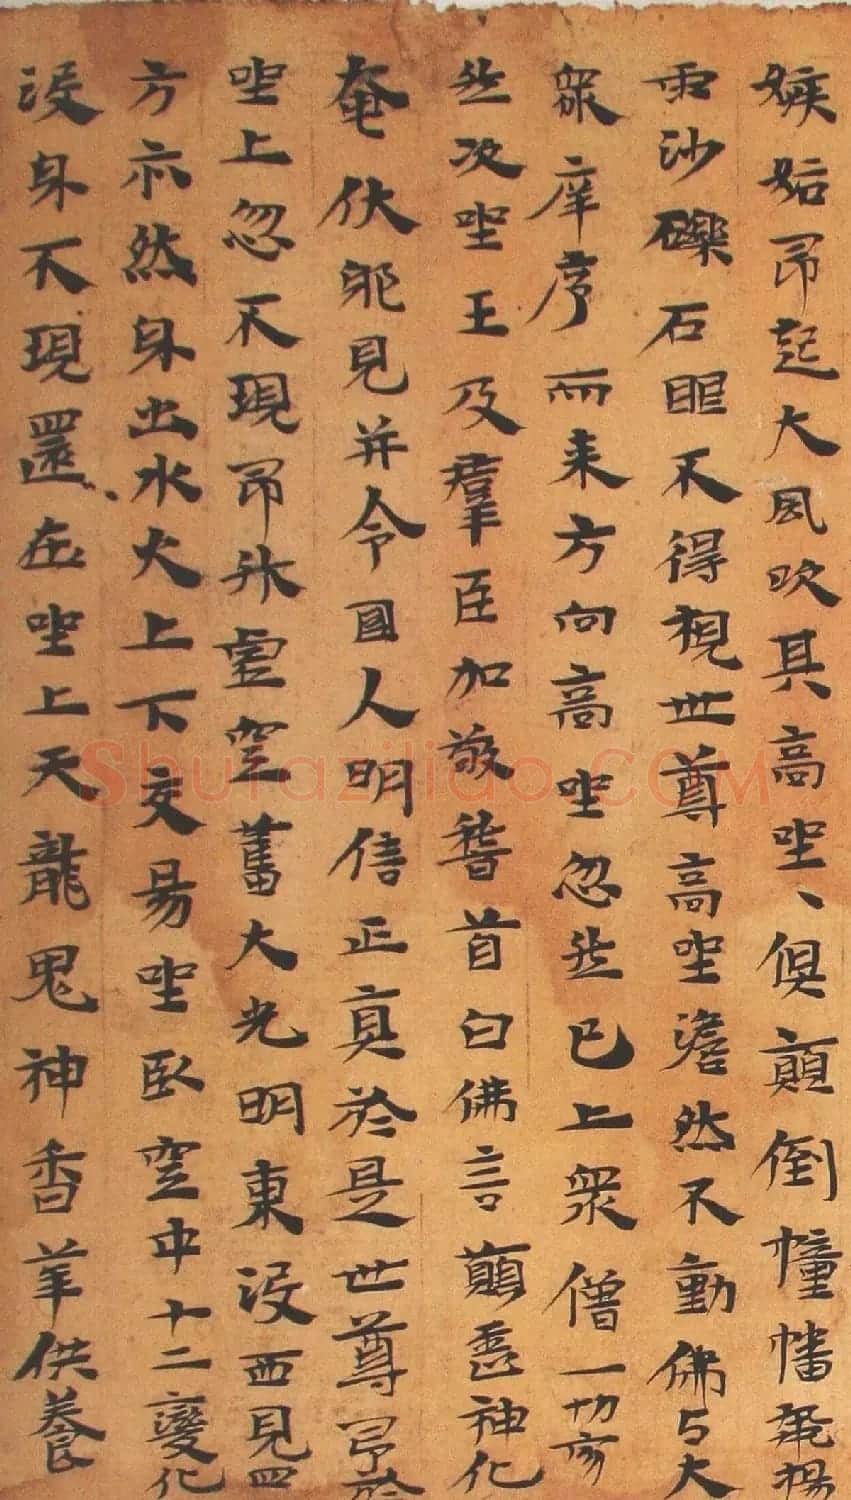 嫉妬即起大風吹其高坐、俱顛倒幢幡飛揚
雨沙礫石眼不得視世尊高坐澹然不動佛与大
眾庠序而来方向高坐忽然已上眾僧一切亦
然次坐王及羣臣加敬稽首白佛言願垂神化
奄伏邪見并令國人明信正真於是世尊即於
坐上忽不現即升虛空奮大光明東沒西見四
方亦然身出水火上下交易坐臥空中十二變化
沒身不現還在坐上天龍鬼神香華供養
Shufaziliao.COM